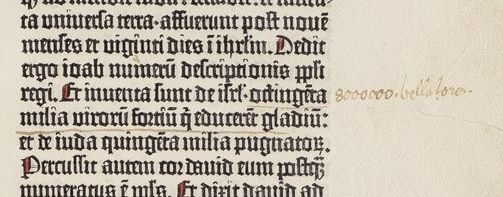 ta vniuersa terra·affuerunt post nouē
menses et viginti dies ī ihrl̄m. Dedit
ergo ioab numerū descriptionis ppl̄i
regi. Et inuenta sunt de isrl̄·octingēta 800000·bellatores·
milia virorū fortiū q̄ educerēt gladiū:
et de iuda quingēta milia pugnatoꝝ.
Percussit autem cor dauid eum postq̄
numeratus ē ppl̄s. Et dixit dauid ad